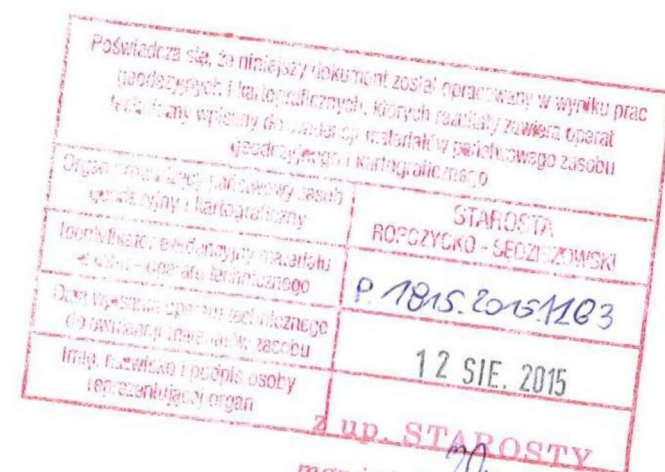 Poświadcza się, że niniejszy dokument został opracowany w wyniku prac
geodezyjnych i kartograficznych, których rezultaty zawiera operat
techniczny wpisany do ewidencji materiałów państwowego zasobu
geodezyjnego i kartograficznego
Organ prowadzący państwowy zasób
geodezyjny i kartograficzny
STAROSTA
ROPCZYCKO - SĘDZISZOWSKI
Identyfikator ewidencyjny materiału
zasobu - operatu technicznego
P. 1815.2015.1163
Data wpisania operatu technicznego
do ewidencji materiałów zasobu
12 SIE. 2015
Imię, nazwisko i podpis osoby
reprezentującej organ
z up. STAROSTY